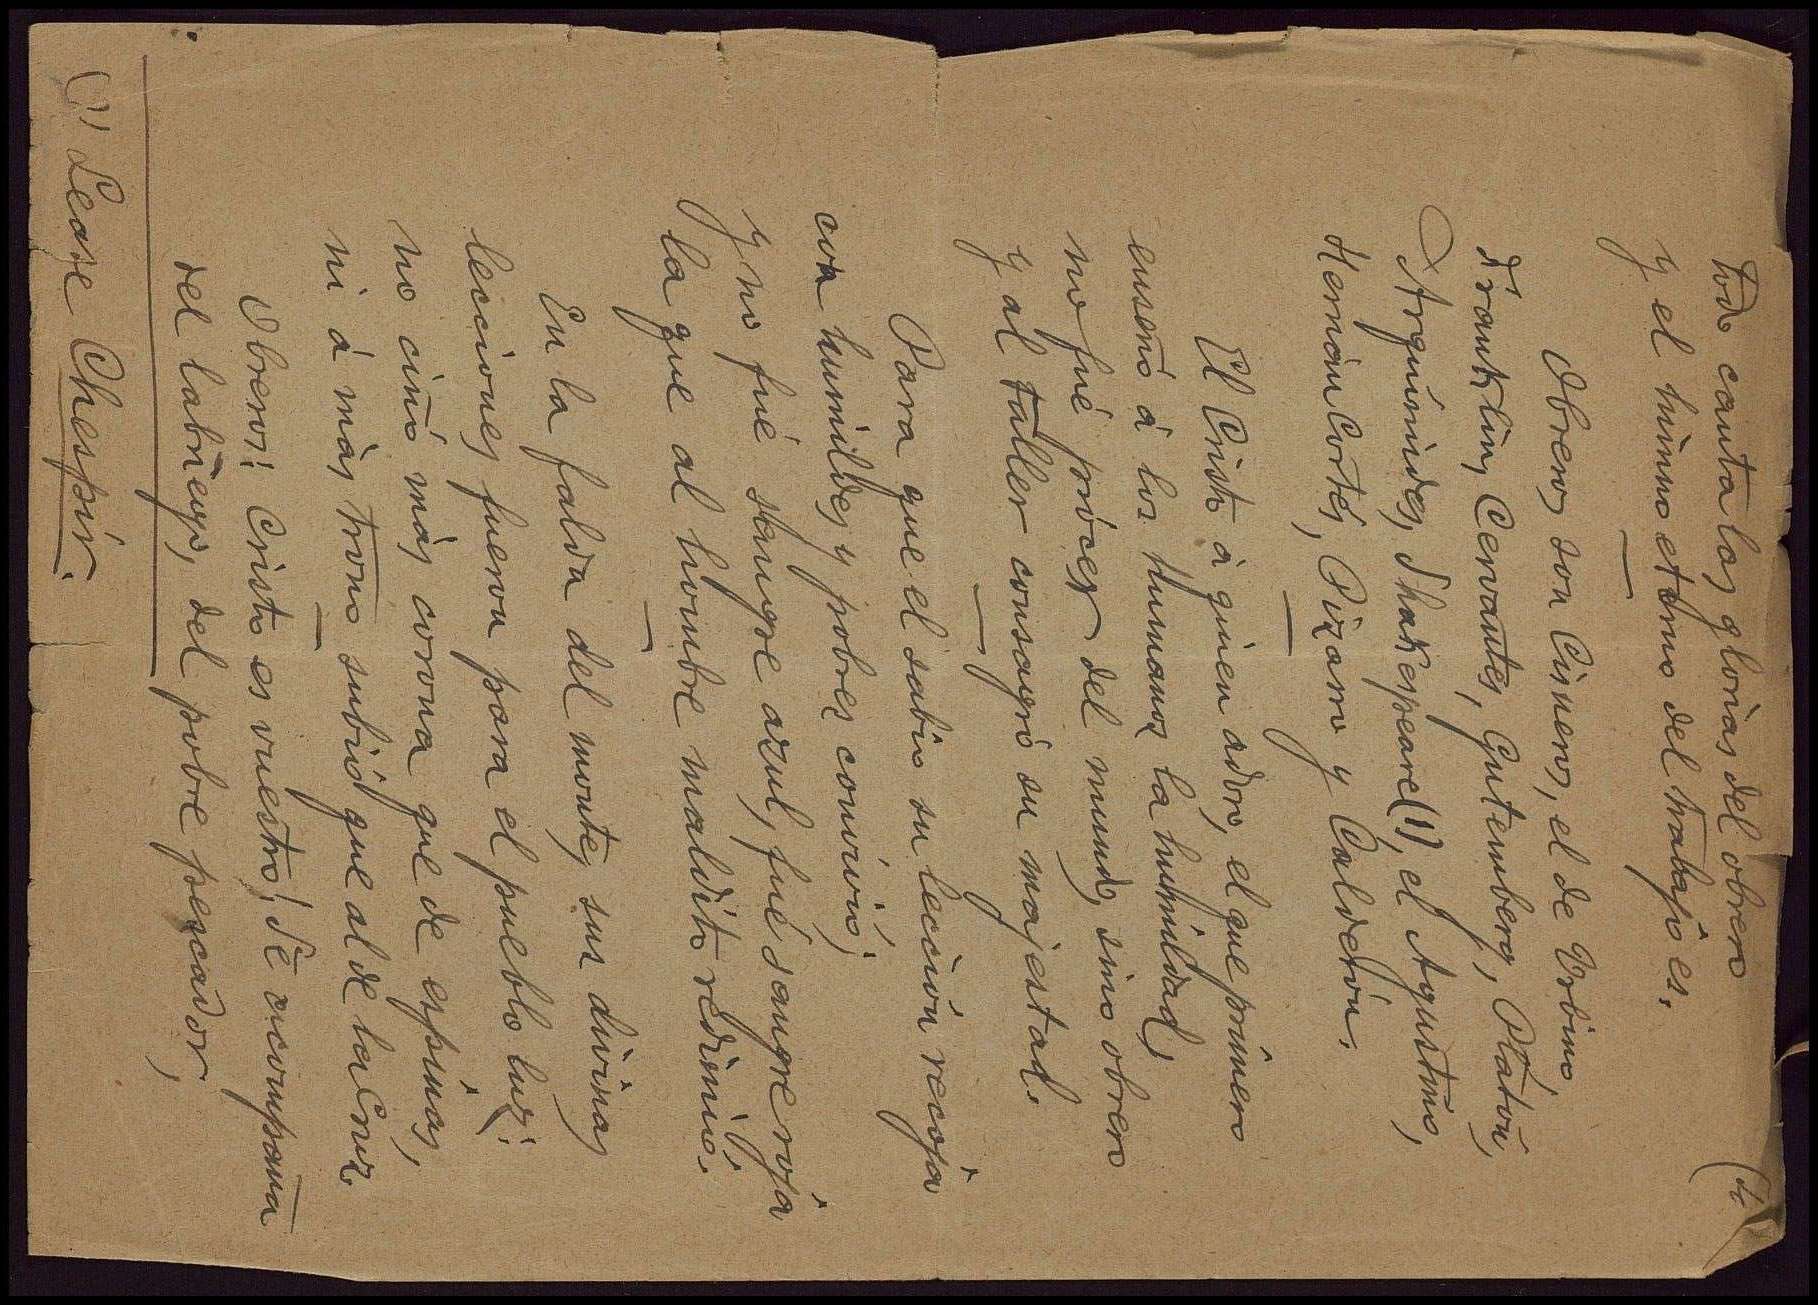 (4
todo canta las glorias del obrero
y el himno eterno del trabajo es.
Obreros son Cisneros, el de Urbino,
Franklin, Cervantes, Gutemberg, Platón,
Arquímides, Shakespeare(1), el Agustino,
Hernán Cortés, Pizarro y Calderón.
El Cristo á quien adoro, el que primero
enseñó á los humanos la humildad,
no fué prócer del mundo, sino obrero
y al taller consagró su majestad.
Para que el sabio su lección recoja
con humildes y pobres convivió;
y no fué sangre azul, fué sangre roja
la que al hombre maldito redimió.
En la falda del monte, sus divinas
lecciones fueron para el pueblo luz;
no ciñó más corona que de espinas,
ni á más trono subió que al de la Cruz.
Obreros: Cristo es vuestro! Se acompaña
del labriego, del pobre pescador,
(1) Lease Chespir.